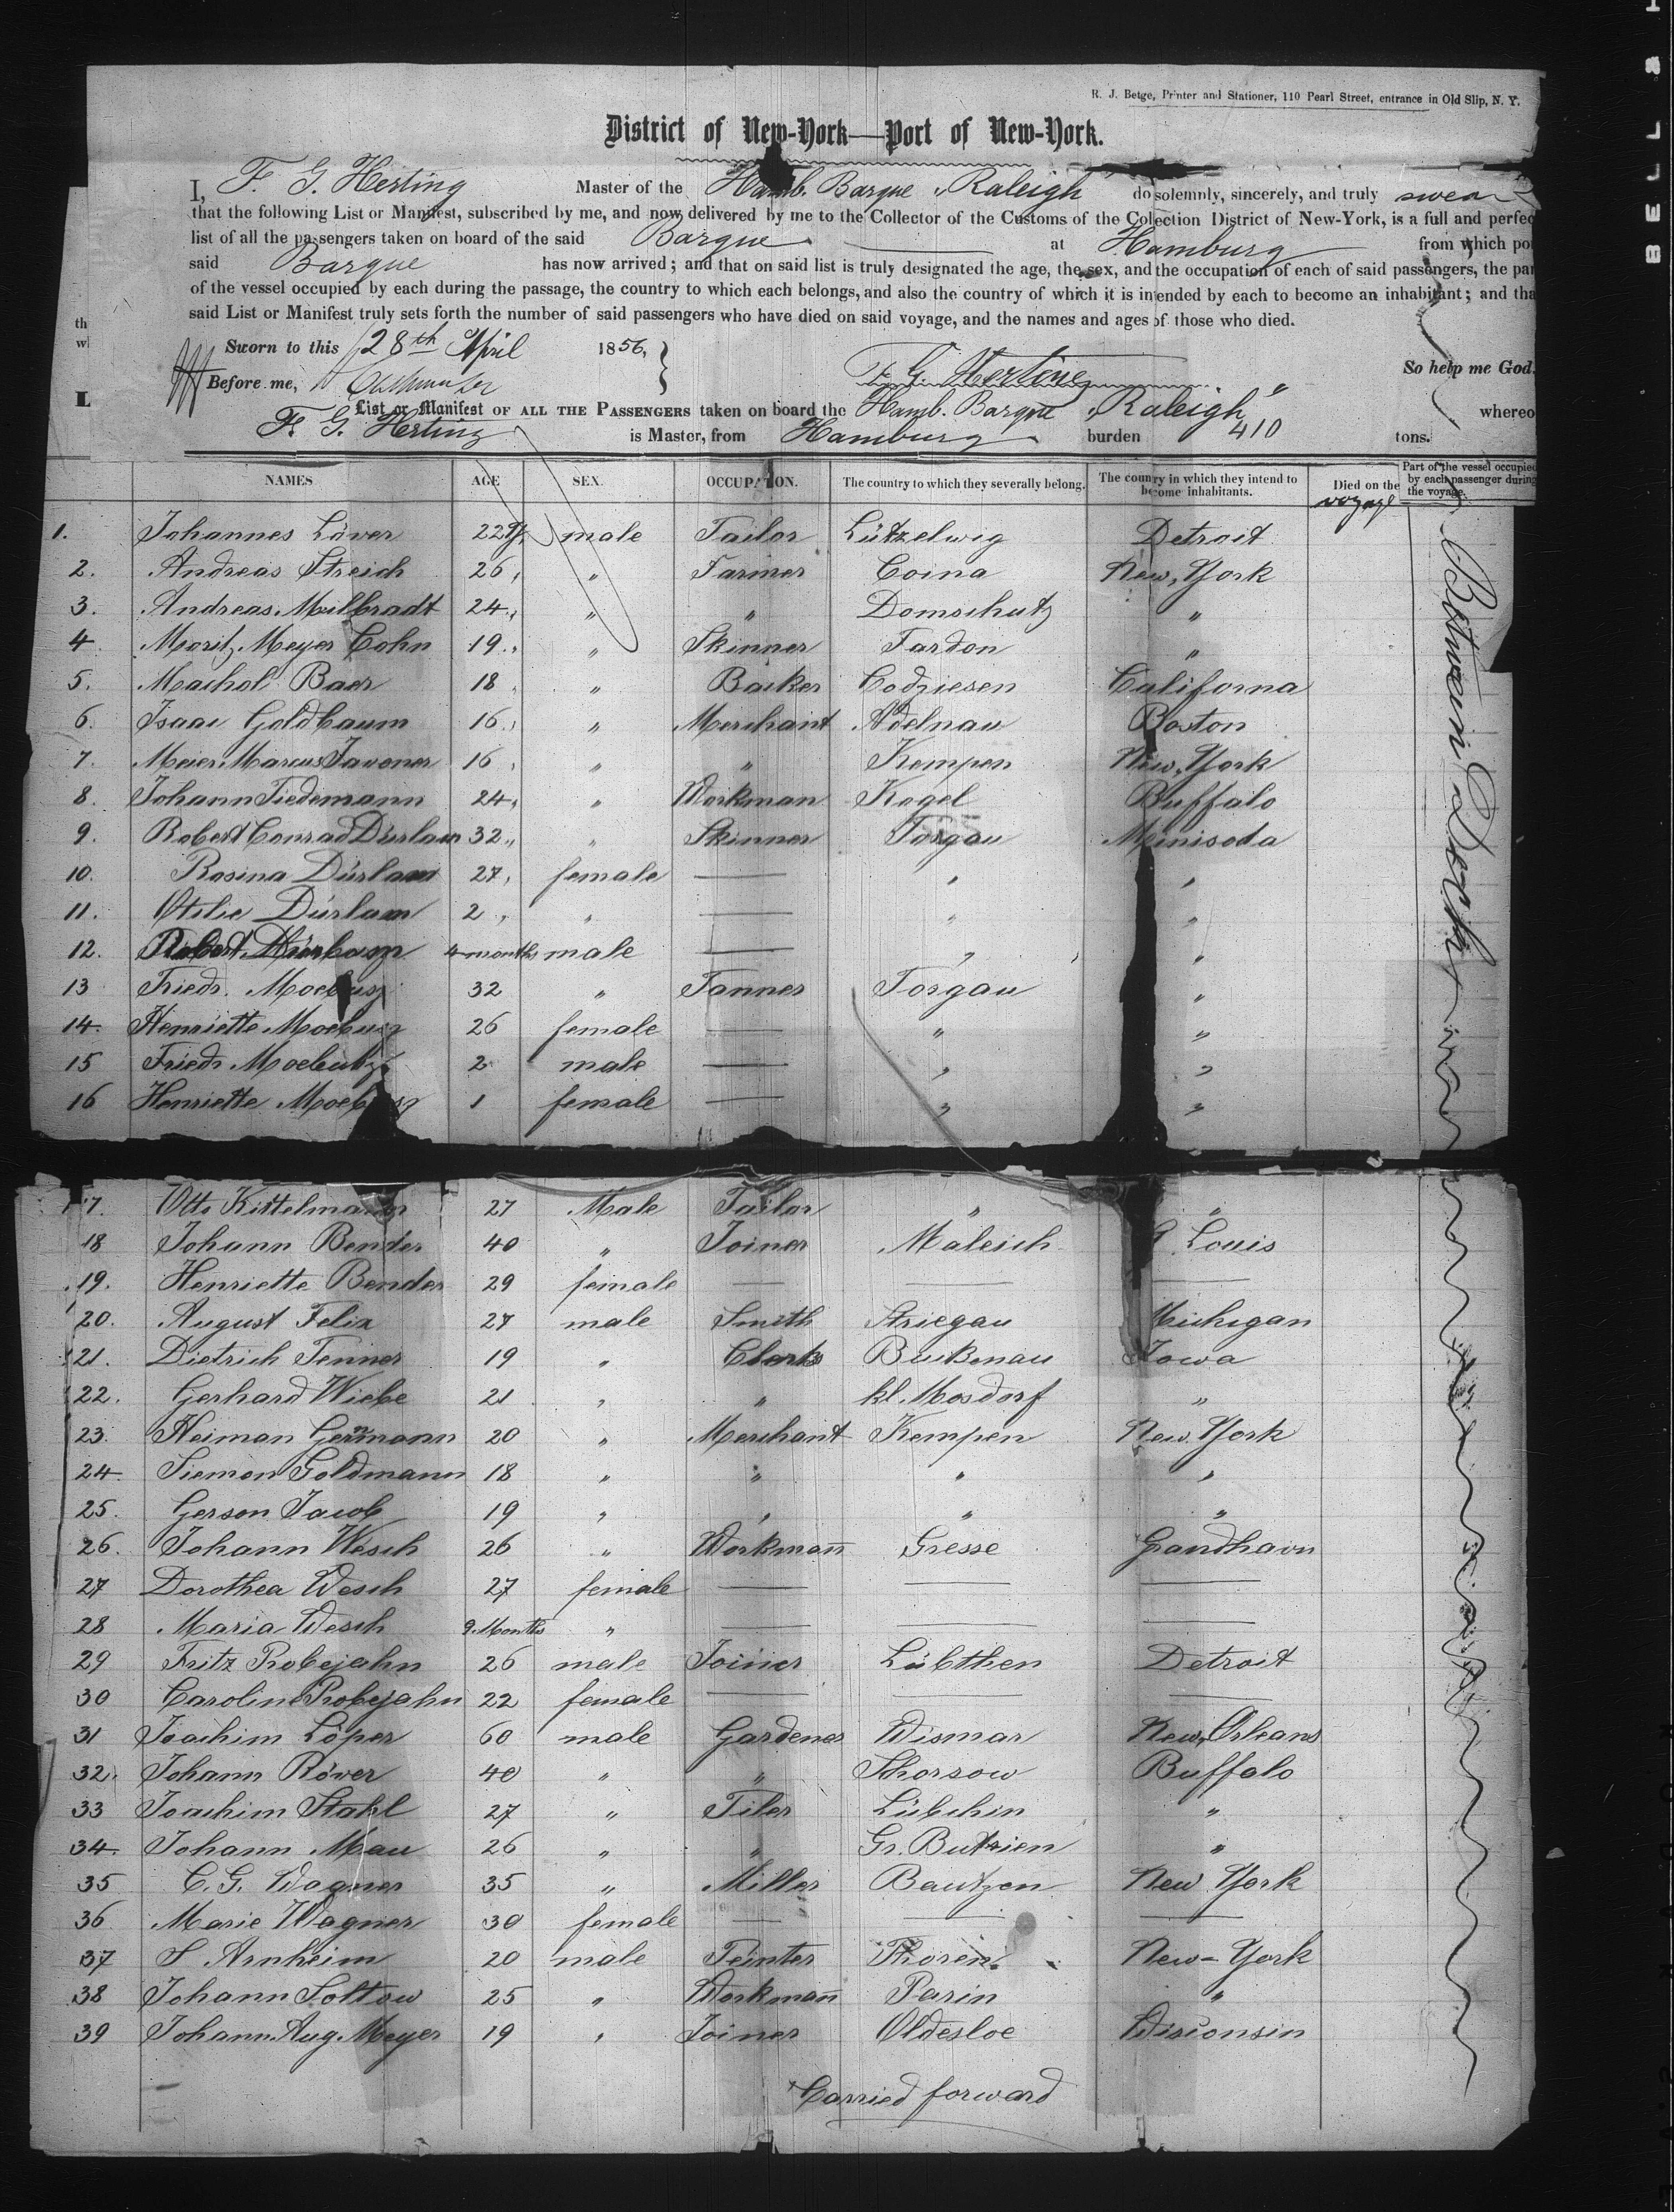 R. J. Betge, Printer and Stationer, 110 Pearl Street, entrance in Old Slip, N. Y.
District of New-York—Port of New-York.
I, F. G. Herting Master of the Hamb. Barque "Raleigh" do solemnly, sincerely, and truly swear
that the following List or Manifest, subscribed by me, and now delivered by me to the Collector of the Customs of the Colection District of New-York, is a full and perfec
list of all the passengers taken on board of the said Barque at Hamburg from which po
said Barque has now arrived; and that on said list is truly designated the age, the sex, and the occupation of each of said passengers, the par
of the vessel occupied by each during the passage, the country to which each belongs, and also the country of which it is intended by each to become an inhabitant; and tha
said List or Manifest truly sets forth the number of said passengers who have died on said voyage, and the names and ages of those who died.
Sworn to this 28th April 1856, So help me God.
Before me, F. G. Herting
List or Manifest OF ALL THE PASSENGERS taken on board the Hamb. Barque "Raleigh" whereo
F. G. Herting is Master, from Hamburg burden 410 tons.
NAMES AGE SEX. OCCUPATION. The country to which they severally belong. The country in which they intend to become inhabitants. Died on the voyage Part of the vessel occupied by each passenger during the voyage.
1. Johannes Löver 22 male Tailor Lützelwig Detroit
2. Andreas Streich 26 " Farmer Coina New York
3. Andreas Milbradt 24 " " Domschutz "
4 Moritz Meyer Cohn 19 " Skinner Fardon "
5. Machol Baer 18 " Backer Codziesen Californa
6. Isaac Goldbaum 16 " Merchant Adelnau Boston
7. Meier Marcus Javoner 16 " " Kempen New York
8. Johann Tiedemann 24 " Workman Kogel Buffalo
9. Robert Conrad Dürlam 32 " Skinner Torgau Minisoda
10. Rosina Dürlam 27 female — " "
11. Otilie Dürlam 2 " — " "
12. Robert Dürlam 4 months male — " "
13 Friedr. Moebusz 32 " Tanner Torgau "
14. Henriette Moebusz 26 female — " "
15 Friedr. Moebusz 2 male — " "
16 Henriette Moebusz 1 female — " "
17. Otto Kittelmann 27 Male Tailor " "
18 Johann Bender 40 " Joiner Maleich St Louis
19. Henriette Bender 29 female — — —
20. August Felix 27 male Smith Striegau Michigan
21. Dietrich Tenner 19 " Clerk Iowa
22. Gerhard Wiebe 21 " " kl. Mosdorf "
23. Heiman Germann 20 " Merchant Kempen New York
24. Siemon Goldmann 18 " " " "
25. Gerson Jacob 19 " " " "
26. Johann Wesch 26 " Workman Gresse Grandhavn
27 Dorothea Wesch 27 female — — —
28 Maria Wesch 9 Months " — — —
29 Fritz Probejahn 26 male Joiner Lübthen Detroit
30 Caroline Probejahn 22 female — — —
31 Joachim Löper 60 male Gardener Wismar New Orleans
32. Johann Röver 40 " " Thorsow Buffalo
33 Joachim Stahl 27 " Tiler Lübchin "
34. Johann Mau 26 " " Gr. Butzien "
35 C. G. Wagner 35 " Miller Bautzen New York
36 Marie Wagner 30 female — — —
37 S Arnheim 20 male Peinter Thoren New-York
38 Johann Soltow 25 " Workman Parin "
39 Johann Aug. Meyer 19 " Joiner Oldesloe Wisconsin
Between Decks
Carried forward